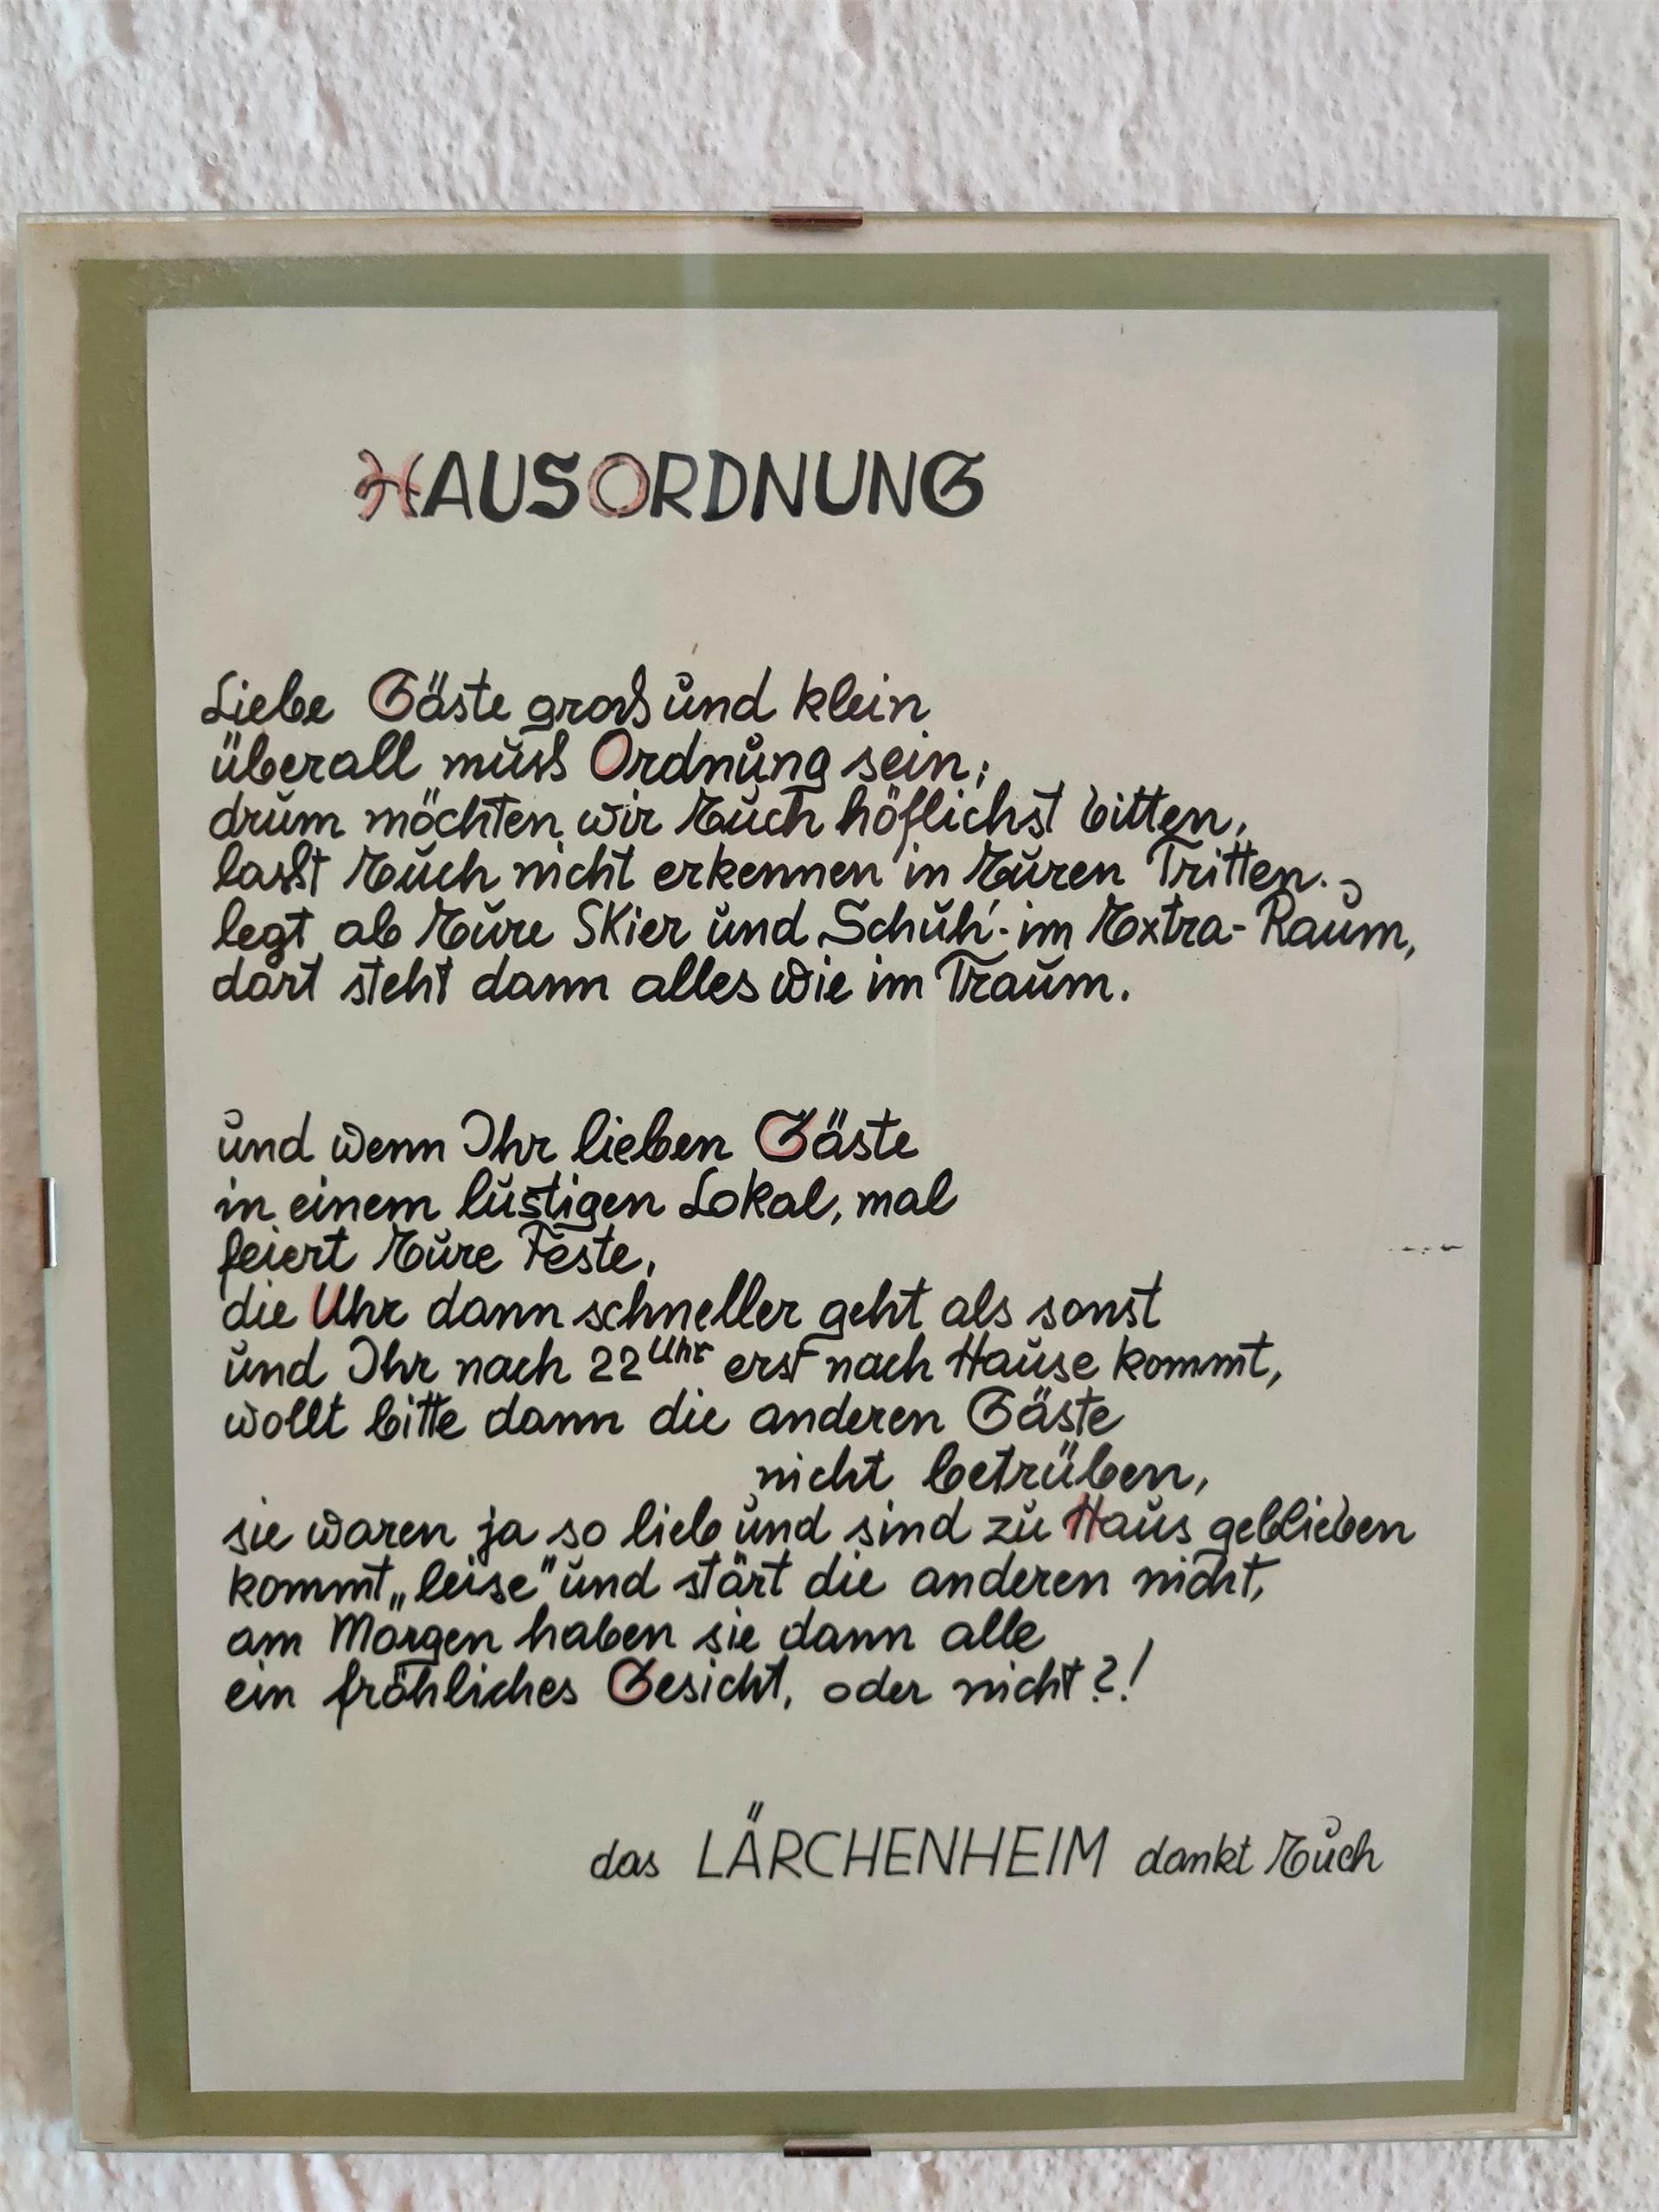 HAUSORDNUNG
Liebe Gäste groß und klein
überall muß Ordnung sein;
drum möchten wir Euch höflichst bitten,
laßt Euch nicht erkennen in Euren Tritten.
legt ab Eure Skier und Schuh' im Extra-Raum,
dort steht dann alles wie im Traum.
und wenn Ihr lieben Gäste
in einem lustigen Lokal, mal
feiert Eure Feste,
die Uhr dann schneller geht als sonst
und Ihr nach 22 Uhr erst nach Hause kommt,
wollt bitte dann die anderen Gäste
nicht betrüben,
sie waren ja so lieb und sind zu Haus geblieben
kommt „leise" und stört die anderen nicht,
am Morgen haben sie dann alle
ein fröhliches Gesicht, oder nicht?!
das LÄRCHENHEIM dankt Euch